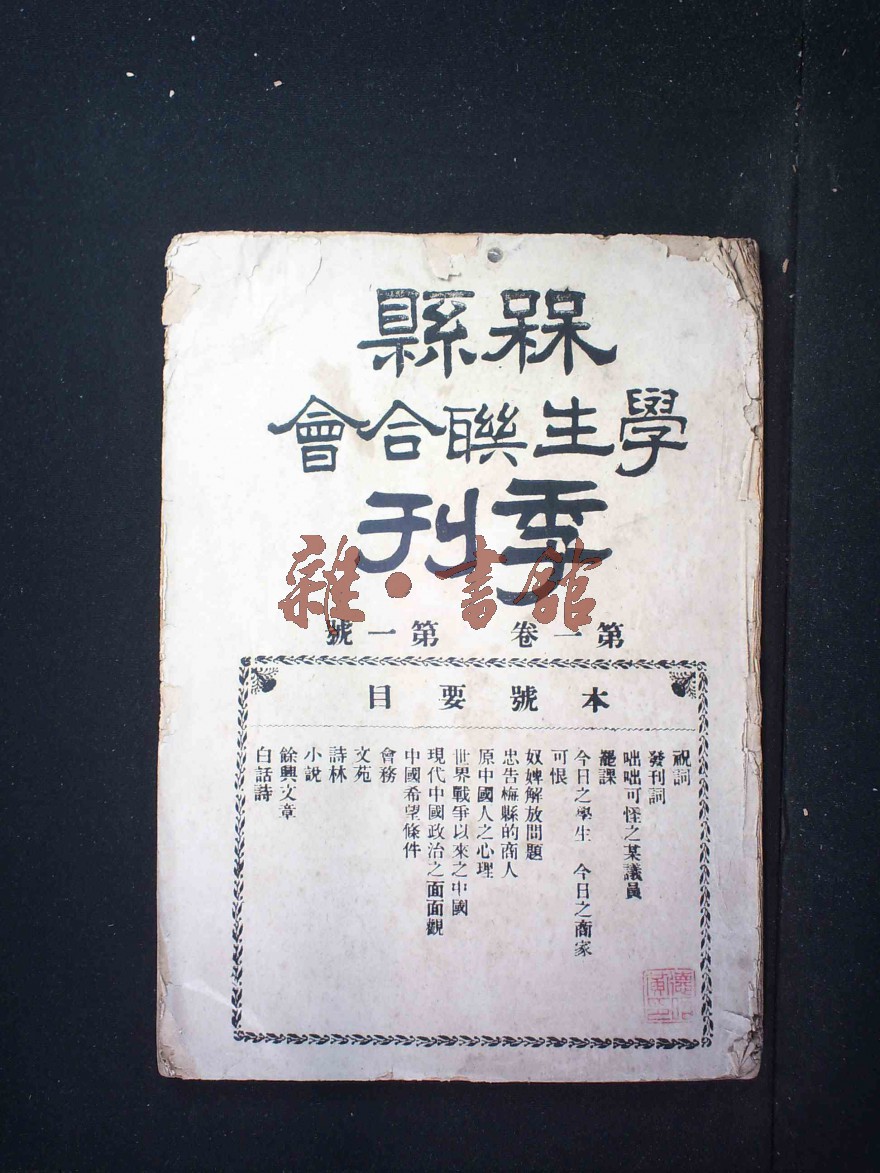 槑縣
學生聯合會
季刊
雜·書館
第一卷 第一號
本號要目
祝詞
發刊詞
咄咄可怪之某議員
罷課
今日之學生 今日之商家
可恨
奴婢解放問題
忠告梅縣的商人
原中國人之心理
世界戰爭以來之中國
現代中國政治之面面觀
中國希望條件
會務
文苑
詩林
小說
餘興文章
白話詩